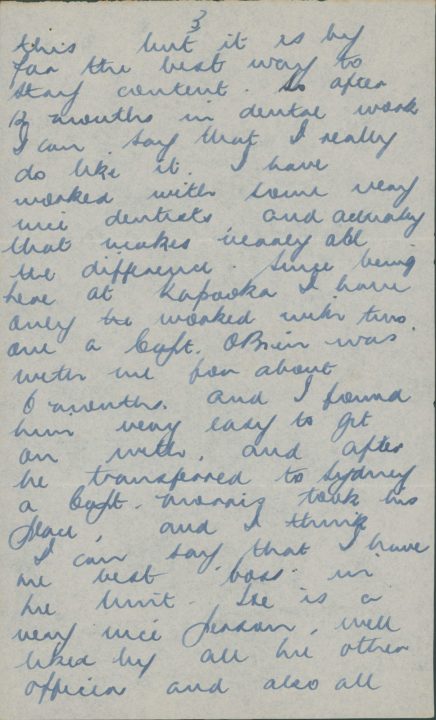 3
this but it is by
far the best way to
stay content. So after
12 months in dental work
I can say that I really
do like it. I have
worked with some very
nice dentists and actually
that makes nearly all
the difference. Since being
here at Kapooka I have
only worked with two.
one a Capt. OBrien was
with me for about
6 months. and I found
him very easy to get
on with, and after
he transferred to Sydney
a Capt. Morris took his
place, and I think
I can say that I have
the best boss in
the Unit. He is a
very nice person, well
liked by all the other
officers and also all